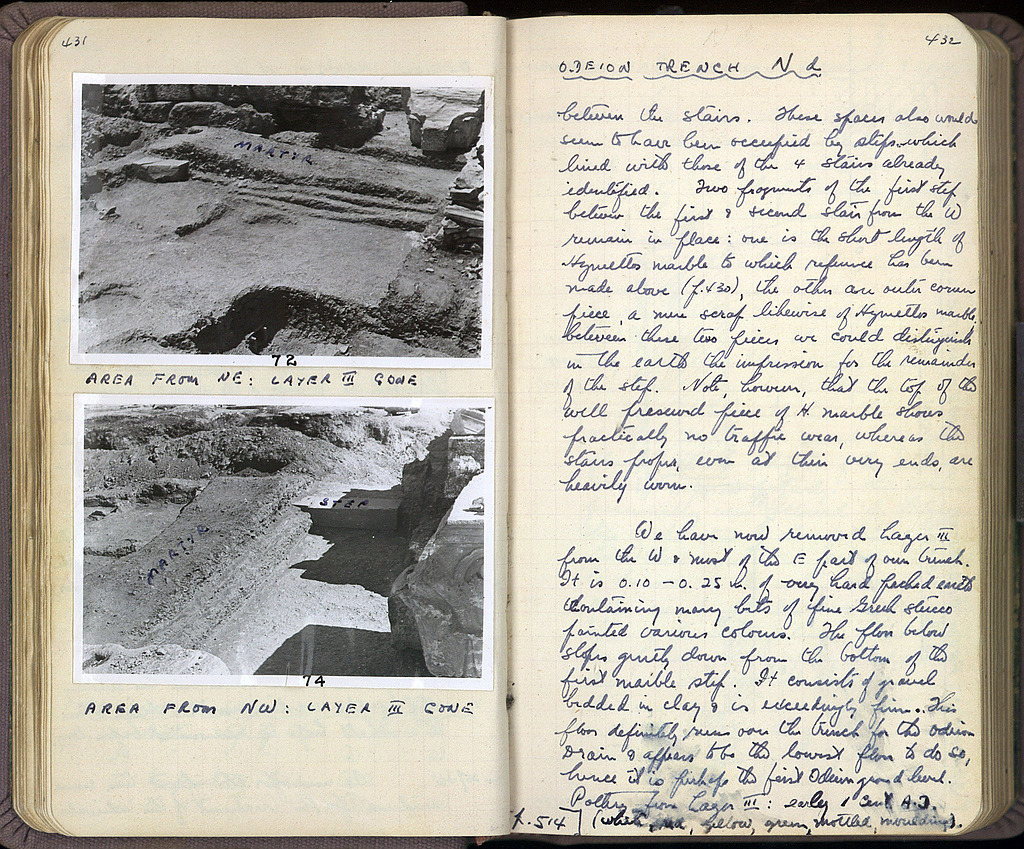 431
MARTYR
72
AREA FROM NE: LAYER III GONE
STEP
MARTYR
74
AREA FROM NW: LAYER III GONE
432
ODEION TRENCH N d
between the stairs. These spaces also would
seem to have been occupied by steps which
lined with those of the 4 stairs already
identified. Two fragments of the first step
between the first & second stair from the W
remain in place: one is the short length of
Hymettos marble to which reference has been
made above (p.430), the other an outer corner
piece, a mere scrap likewise of Hymettos marble.
between these two pieces we could distinguish
in the earth the impression for the remainder
of the step. Note, however, that the top of the
well preserved piece of H. marble shows
practically no traffic wear, whereas the
stairs proper, even at their very ends, are
heavily worn.
We have now removed Layer III
from the W & most of the E part of our trench.
It is 0.10 - 0.25 m. of very hard packed earth
containing many bits of fine Greek stucco
painted various colours. The floor below
slopes gently down from the bottom of the
first marble step. It consists of gravel
bedded in clay & is exceedingly firm. This
floor definitely runs over the trench for the Odeion
Drain & appears to be the lowest floor to do so,
hence it is perhaps the first Odeion ground level.
Pottery from Layer III: early 1 cent A.D.
p. 514] (white, red, yellow, green, mottled, mouldings).